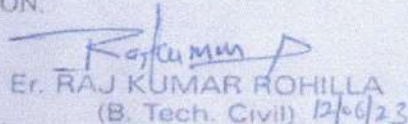 ON.
Rajkumar
Er. RAJ KUMAR ROHILLA
(B. Tech. Civil) 12/06/23